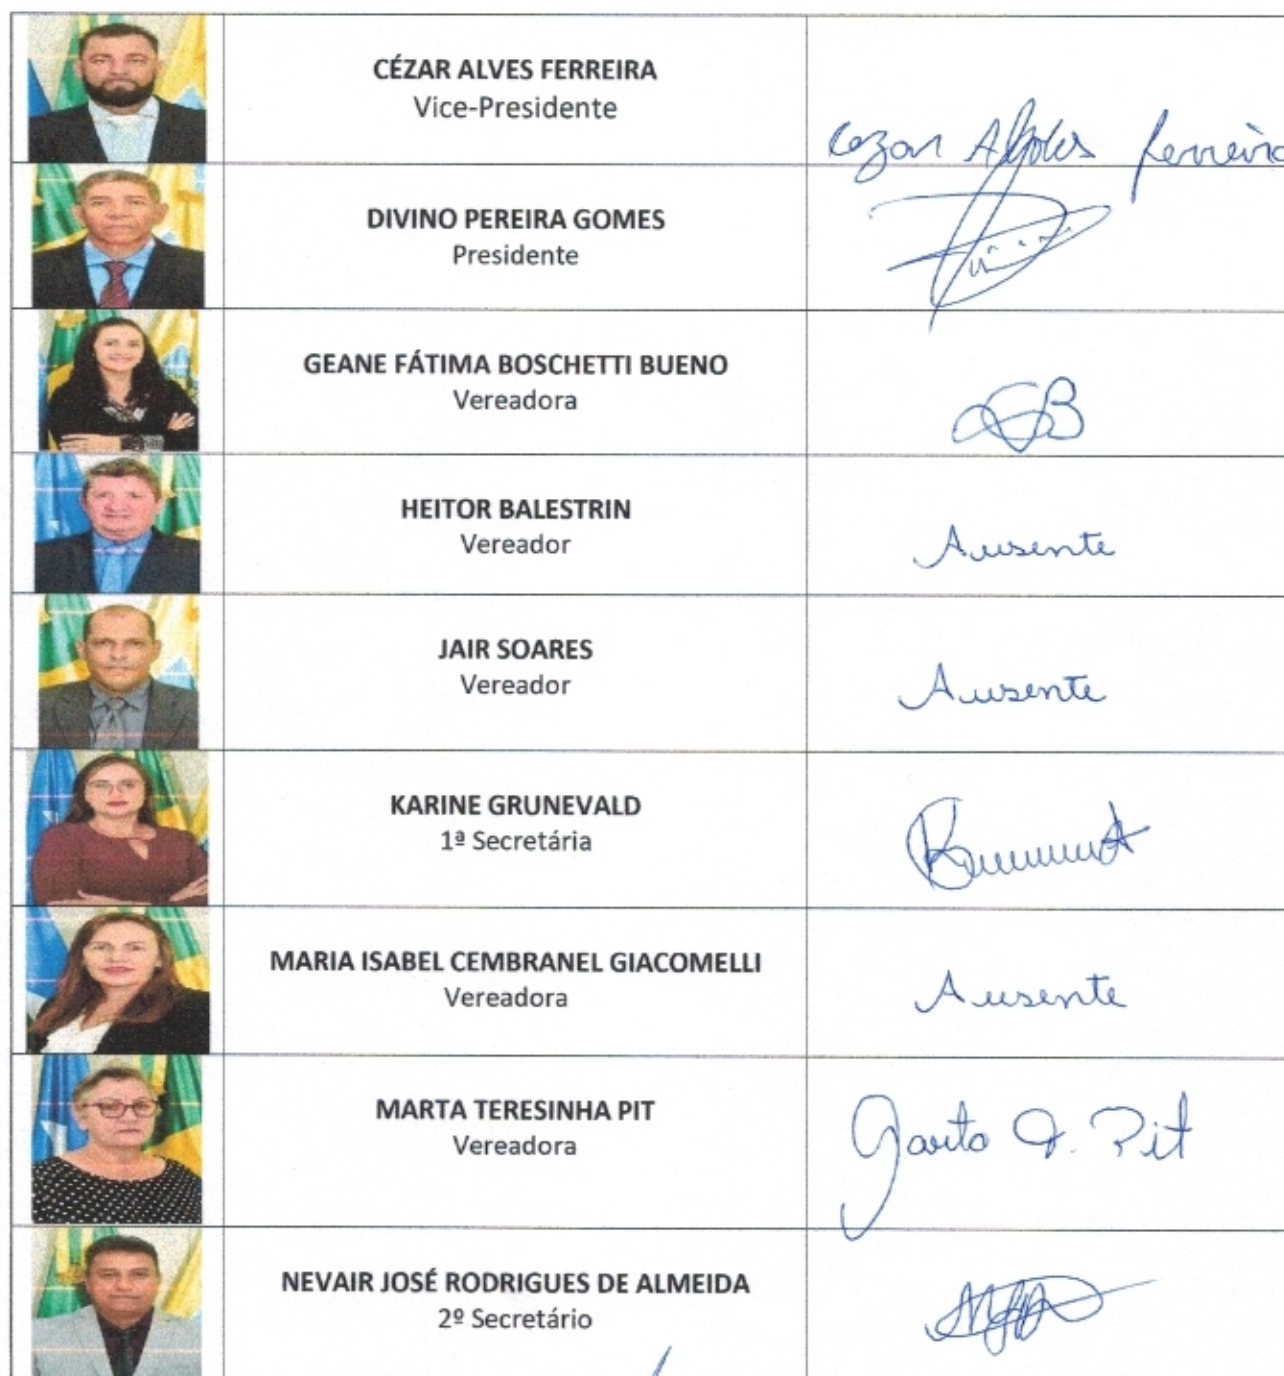 CÉZAR ALVES FERREIRA
Vice-Presidente
Cezar Alves Ferreira
DIVINO PEREIRA GOMES
Presidente
GEANE FÁTIMA BOSCHETTI BUENO
Vereadora
HEITOR BALESTRIN
Vereador
Ausente
JAIR SOARES
Vereador
Ausente
KARINE GRUNEVALD
1ª Secretária
MARIA ISABEL CEMBRANEL GIACOMELLI
Vereadora
Ausente
MARTA TERESINHA PIT
Vereadora
Marta T. Pit
NEVAIR JOSÉ RODRIGUES DE ALMEIDA
2º Secretário